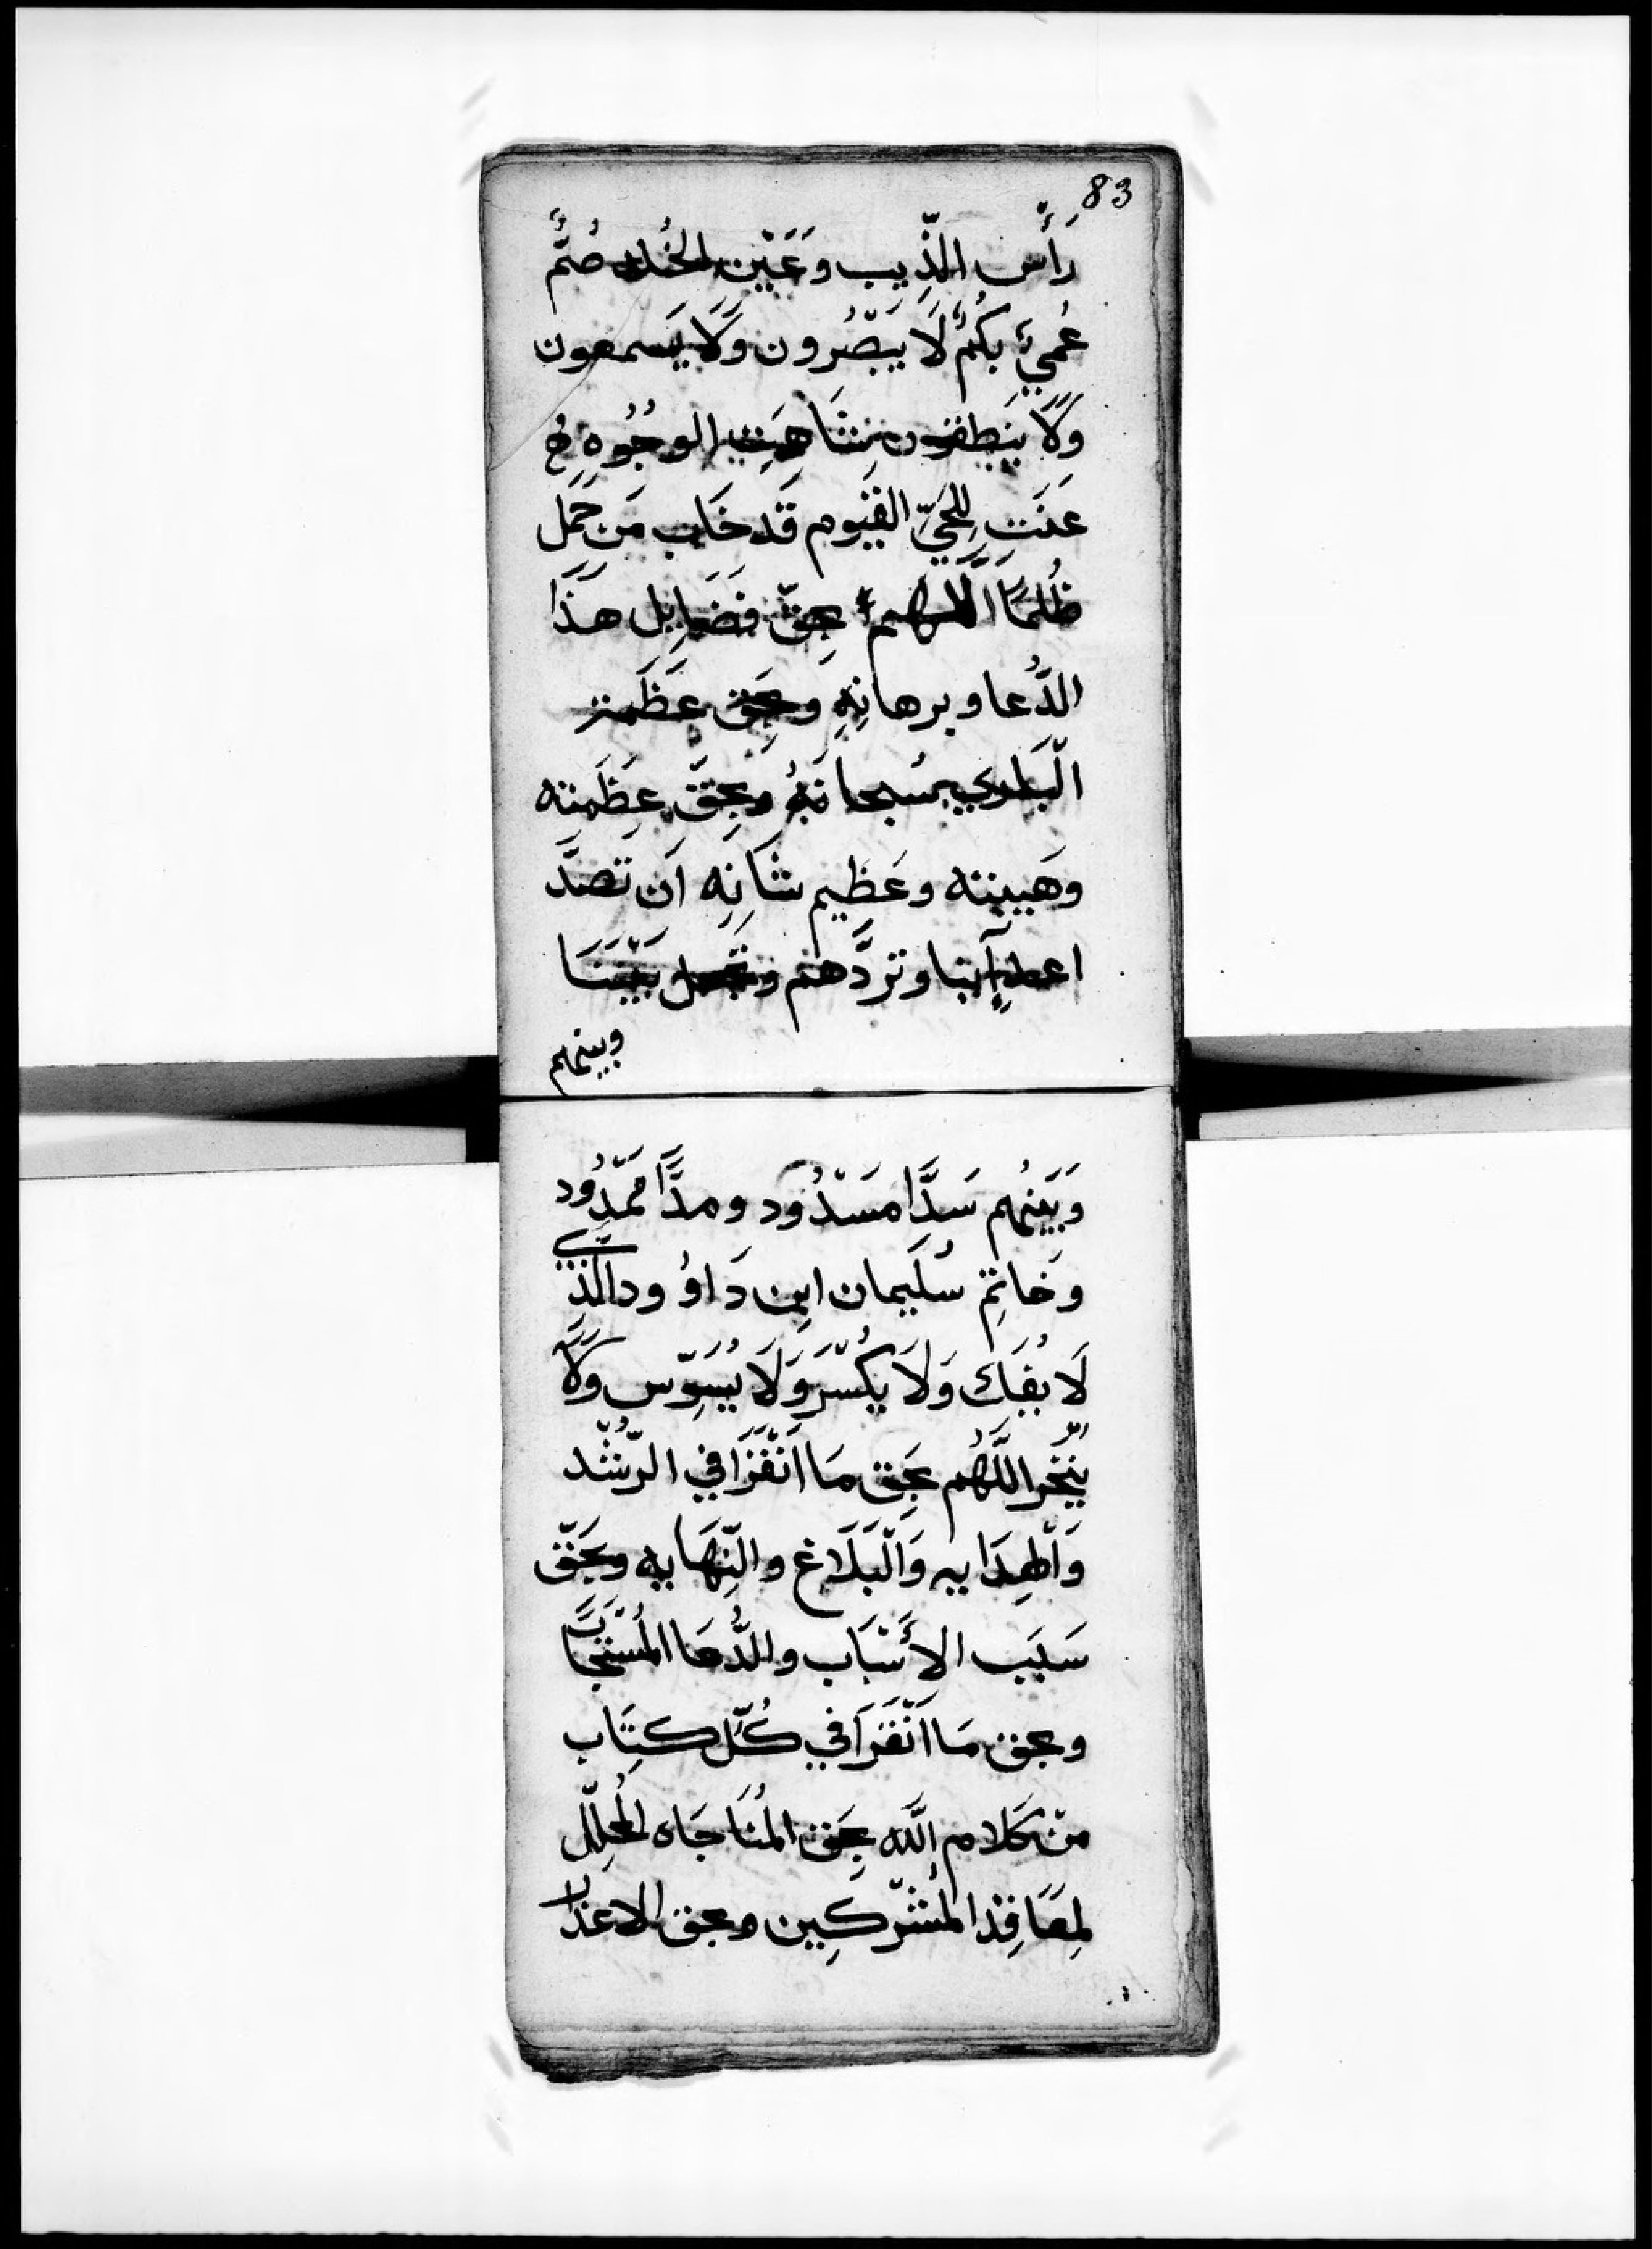 83
رَأْس الذِّيب وَعَيْن الخُلد صُمٌّ
عُميٌ بُكُمٌ لَا يَبّصُرون وَلَا يَسمعون
وَلَا ينَطقون شَاهِتِ الوجُوهِ
عَنَتِ لِلحَيِّ القيّوم قَد خَاب مَن حَمَل
ظُلمًا اللهم بحِقّ فضَايِل هَذَا
الدُّعا وبرهانِهِ وبحَق عَظَمت
الّبَاري سُبحانَهُ وبحِقّ عِظَمته
وهَيبته وعَظيم شَانِه اَن تصدَّ
اعدآينا وتردَّهم وتجعل بَيّنَنَا
وبينهم
وَبَيَنهُم سَدَّا مَسَدُود ومدًّا مَمّدُود
وَخاتِم سُلَيمان ابِن دَاوُود الَّذِي
لَا يُفَك وَلَا يكُسّر وَلَا يُسَوِّس وَلَا
يُنِخّر اللَّهُم بحَق مَا اَنّقَرَا في الرُّشّد
وَالّهِدَايه وَالّبَلَاغ والنِّهَايه وبحَقّ
سَبَب الأَسّبَاب والدُّعَا المُسّتَجَاب
وبحق مَا اَنّقَرَا في كُلّ كِتَاب
منّ كَلام اللَّه بحَق المُنَاجَاه المُحلِّل
لِمعَاقِد المُشّركِين وبحق الاعذار